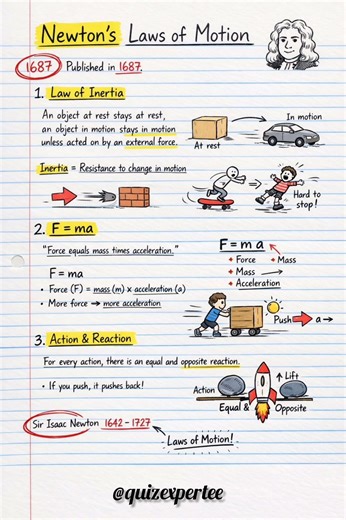 Newton's Laws of Motion
1687 Published in 1687.
1. Law of Inertia
An object at rest stays at rest,
an object in motion stays in motion
unless acted on by an external force.
At rest
In motion
Inertia = Resistance to change in motion
Hard to
stop!
2. F = ma
"Force equals mass times acceleration."
F = ma
• Force (F) = mass (m) x acceleration (a)
• More force → more acceleration
F = m a
Force Mass
Mass →
Acceleration
Push a →
3. Action & Reaction
For every action, there is an equal and opposite reaction.
• If you push, it pushes back!
Action
↑ Lift
Equal & Opposite
Sir Isaac Newton 1642 - 1727
Laws of Motion!
@quizexpertee